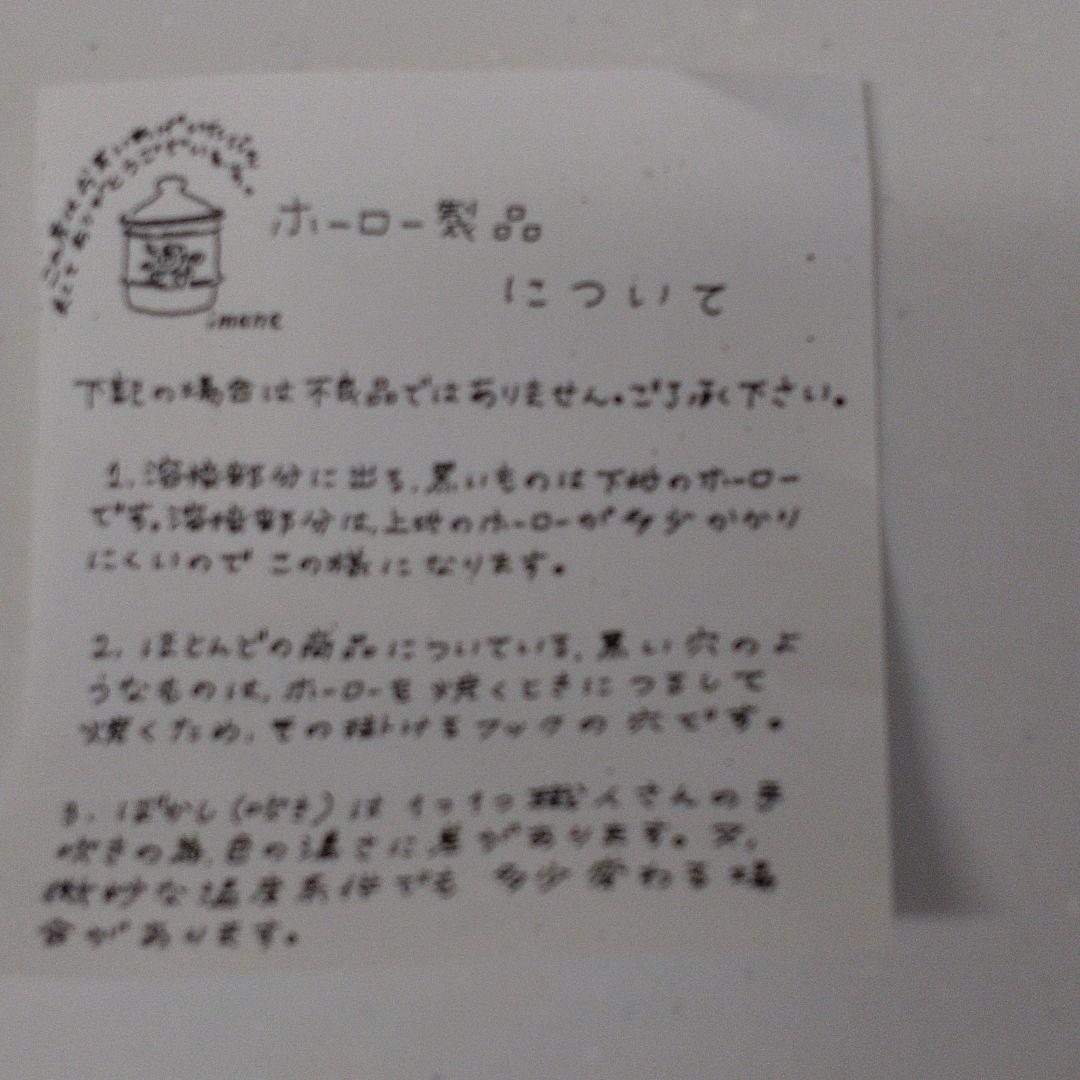 この度はお買いあげいただきまして
ありがとうございました。
imane
ホーロー製品
について
下記の場合は不良品ではありません。ご了承く下さい。
1. 溶接部分に出る、黒いものは下地のホーロー
です。溶接部分は、上地のホーローが多少かかり
にくいので この様になります。
2. ほとんどの商品についている、黒い穴のよ
うなものは、ホーローを焼くときにつるして
焼くため、その掛けるフックの穴です。
3. ぼかし(吹き)は 1つ1つ職人さんの手
吹きの為、色の濃さに差があります。又、
微妙な温度条件でも 多少変わる場
合があります。